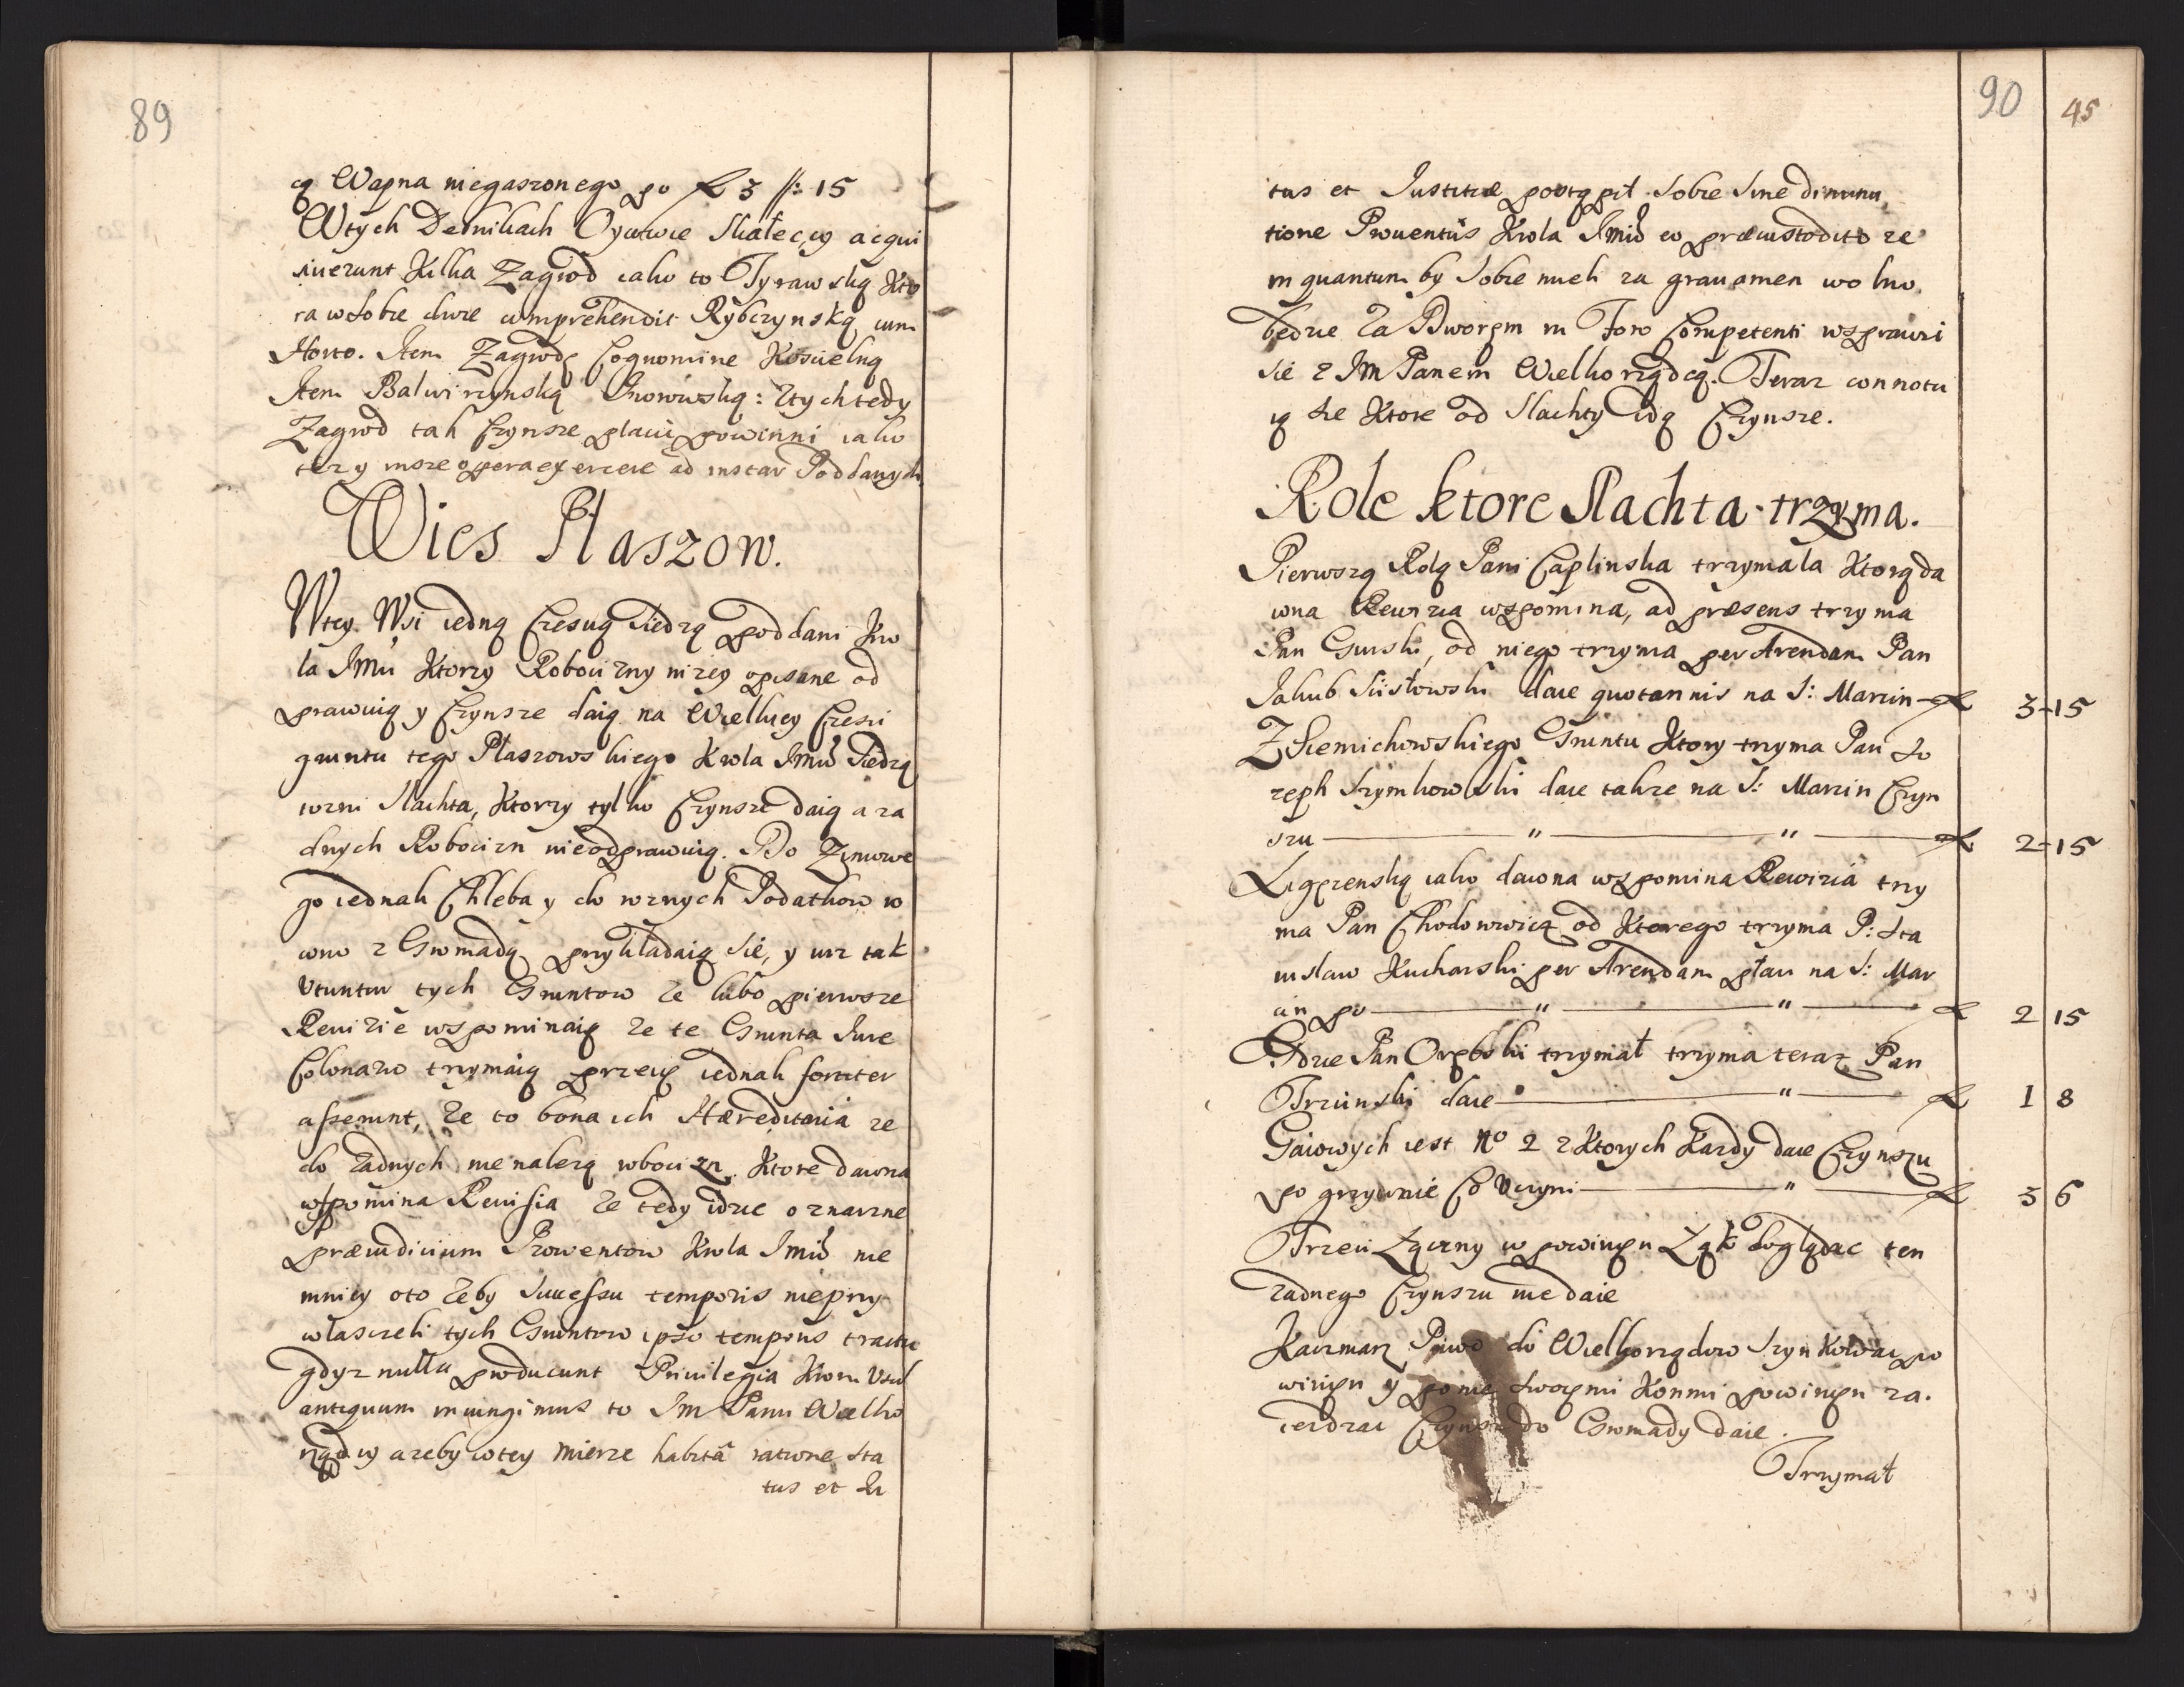 89
cą Wapna niegaszonego po fl 3 ſ: 15
Wtych Debnikach Oycowie Skałeccy acqui
siuerunt Kilka Zagrod iako to Tyrawską Kto
ra wsobie dwie comprehendit Rybczynską cum
Horto. Item Zagrodę Cognomine Koscielną
Item Balwirzynską Ztych tedy
Zagrod tak Czynsze płacic powinni iako
tez y insze opera exercere ad instar Poddanych
Wies Płaszow.
Wtey Wsi iedną Czescią Siedzą poddani Kro
la Imci Ktorzy Robocizny nizey opisane od
prawuią y Czynsze daią na Wielkiey Czesci
gruntu tego Płaszowskiego Krola Imci Siedzą
rozni Slachta, Ktorzy tylko Czynsze daią a za
dnych Robocizn nieodprawuią. Do Zimowe
go iednak Chleba y do roznych Podatkow ro
wno z Gromadą przykładaią Sie, y iuz tak
Vtuntur tych Gruntow ze lubo pierwsze
Rewizie wspominaią ze te Grunta Iure
Colonario trzymaią przecię iednak fortiter
asserunt, ze to bona ich Hæreditaria ze
do zadnych nie nalezą robocizn Ktore dawna
wspomina Rewisia ze tedy idzie o znaczne
præiudicium Prowentow Krola Imci nie
mniey oto zeby Successu temporis nieprzy
właszczeli tych Gruntow ipso temporis tractu
gdyz nulla producunt Privilegia Kro
antiquum iniungimus to Im Panu Wielko
rządcy azeby wtey mierze habitâ ratione sta
tus et Iu
90
45
tus et Iustitiæ postąpił Sobie Sine diminu
tione Prouentûs Krola Imci eo præcustodito ze
in quantum by Sobie mieli za grauamen wolno
będzie za Dworem in Foro Competenti wsprawi
sie z Im Panem Wielkorządcą. Teraz connotu
ią sie Ktore od Slachty idą Czynsze.
Role ktore Slachta trzyma.
Pierwszą Rolą Pani Caplinska trzymała Ktorą da
wna Rewizia wspomina, ad præsens trzyma
Pan Gurski, od niego trzyma per Arendam Pan
Jakub daie quotannis na S: Marcin fl 3 15
Z Siemichowskiego Gruntu Ktory trzyma Pan Jo
zeph Szymkowski daie takze na S: Marcin Czyn
szu " " fl 2 15
iako dawna wspomina Rewizia trzy
ma Pan Chodorowicz od Ktorego trzyma P: Sta
nislaw Kucharski per Arendam płaci na S: Mar
cin po " " fl 2 15
Gdzie Pan Orębski trzymał trzyma teraz Pan
Trzcinski daie " fl 1 8
Gaiowych iest No 2 z Ktorych Kazdy daie Czynszu
po grzywnie Co Vczyni " fl 3 6
Trzeci Łączny w powinien Łąk doglądac ten
zadnego Czynszu nie daie
Karczmarz Piwo do Wielkorządow Szynkowac po
winien y po nie Swoiemi Konmi powinien za.
iezdzac Czynsz do Gromady daie.
Trzymał